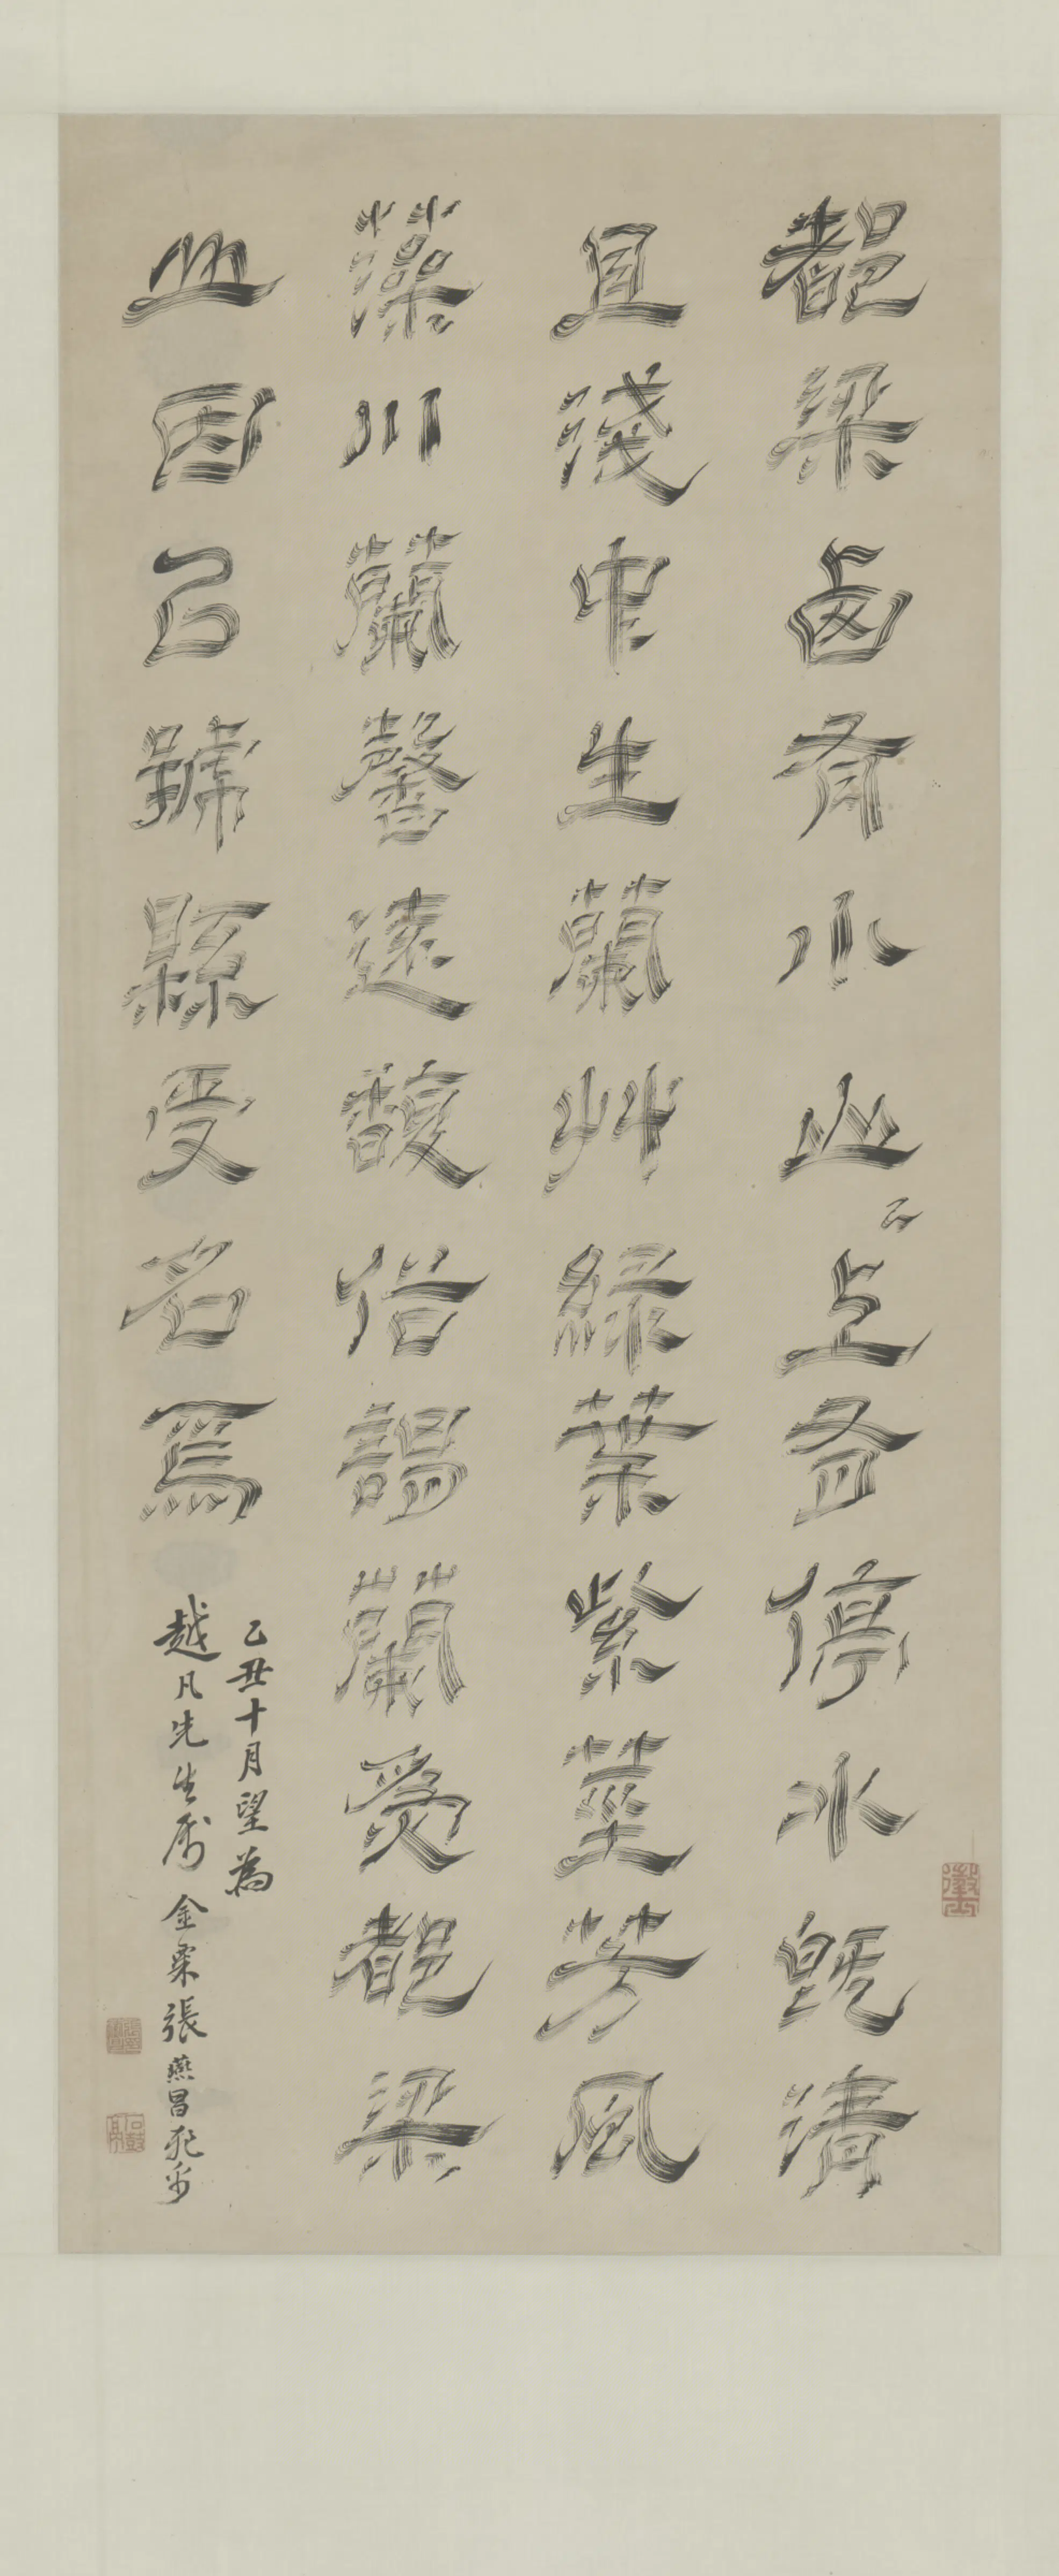 都梁西有小山〻上有停水既清
且淺中生蘭艸綠葉紫莖芳風
藻川蘭馨遠馥俗謂蘭爲都梁
山因㠯號縣受名焉
乙丑十月望為
越凡先生屬 金粟張燕昌